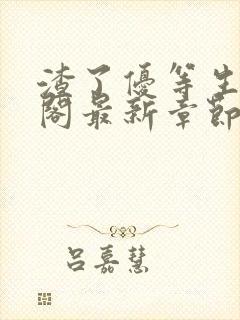 渣了優等生
閣最新章節
呂嘉慧